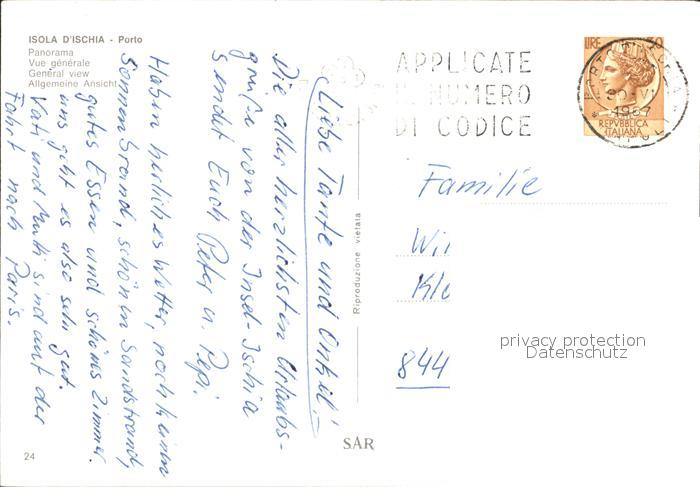 ISOLA D'ISCHIA - Porto
Panorama
Vue générale
General view
Allgemeine Ansicht
APPLICATE
IL NUMERO
DI CODICE
LIRE 30
REPVBBLICA
ITALIANA
Liebe Tante und Onkel!
Die aller herzlichsten Urlaubs-
grüße von der Insel-Ischia
sendet Euch Peter u. Pepi.
Haben herliches Wetter, noch keinen
Sonnenbrand, schönen Sandstrand,
gutes Essen und schönes Zimmer.
uns geht es also sehr gut.
Kati und Mutti sind auf der
Fahrt nach Paris.
Riproduzione vietata
Familie
Wii
Kle
844
privacy protection
Datenschutz
SAR
24